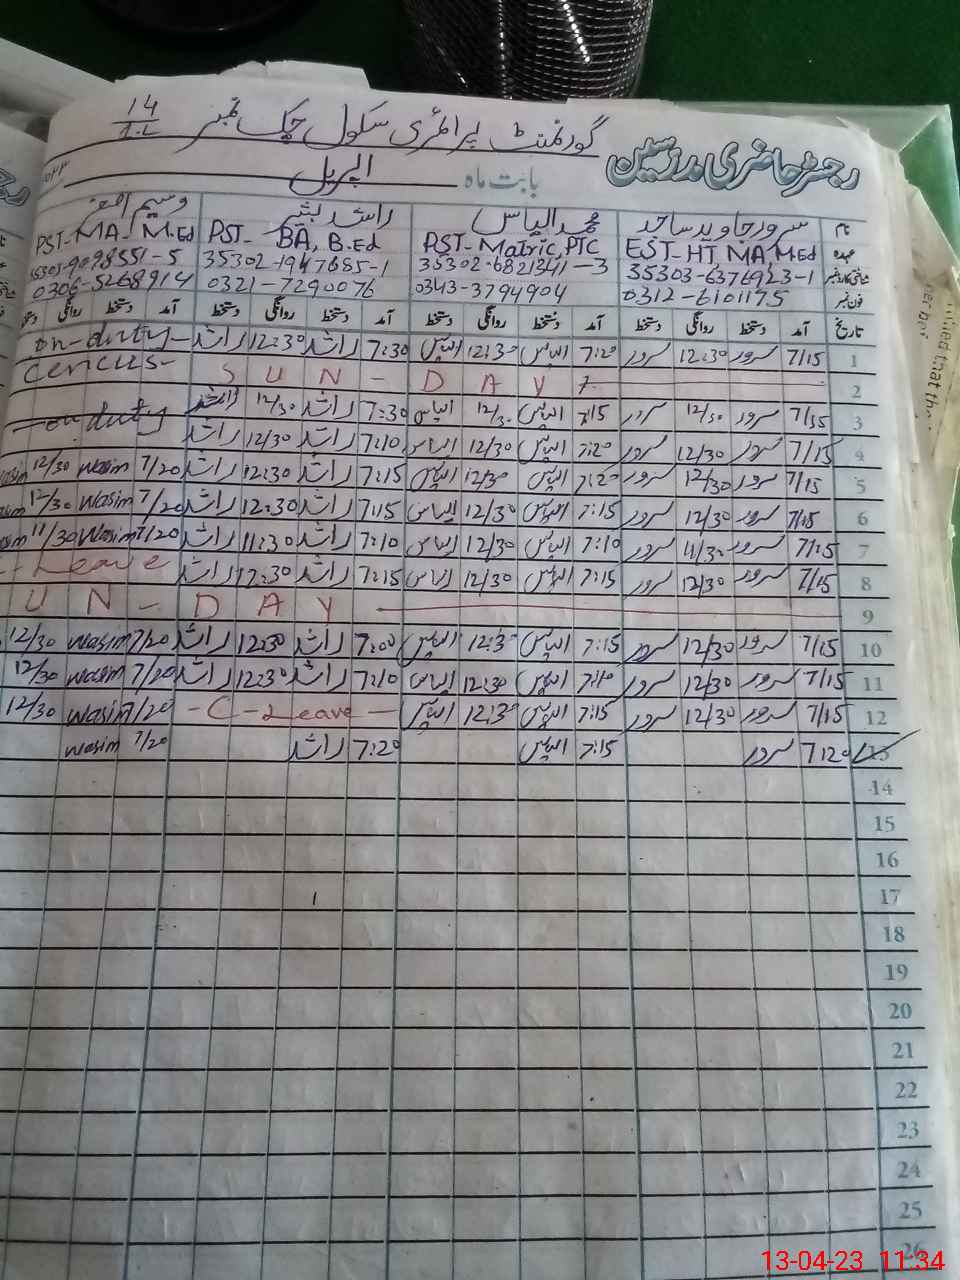 گورنمنٹ پرائمری سکول چک نمبر 14
رجسٹر حاضری مدرسین
بابت ماہ اپریل
نام سرور جاوید ساجد محمد الیاس راشد بشیر وسیم
عہدہ EST-HT, MA, M.Ed PST-Matric, PTC PST- BA, B.Ed PST-MA, M.Ed
شناختی کارڈ نمبر 35303-6376923-1 35302-6821341-3 35302-1947685-1 35303-9098551-5
فون نمبر 0312-6101175 0343-3794904 0321-7290076 0306-5268914
تاریخ آمد دستخط روانگی دستخط آمد دستخط روانگی دستخط آمد دستخط روانگی دستخط آمد دستخط روانگی دستخط
1 7/15 سرور 12:30 سرور 7:20 الیاس 12:30 الیاس 7:30 راشد 12:30 راشد on-duty-
2 SUN-DAY cencus-
3 7/15 سرور 12/30 سرور 7:15 الیاس 12/30 الیاس 7:30 راشد 12/30 راشد on duty
4 7/15 سرور 12/30 سرور 7:20 الیاس 12/30 الیاس 7:10 راشد 12/30 راشد
5 7/15 سرور 12/30 سرور 7:20 الیاس 12/30 الیاس 7:15 راشد 12:30 راشد 7/20 wasim 12/30
6 7/15 سرور 12/30 سرور 7:15 الیاس 12/30 الیاس 7:15 راشد 12:30 راشد 7/20 wasim 12/30
7 7/15 سرور 11/30 سرور 7:10 الیاس 12/30 الیاس 7:10 راشد 11:30 راشد 7/20 Wasim 11/30
8 7/15 سرور 12/30 سرور 7:15 الیاس 12/30 الیاس 7:15 راشد 12:30 راشد Leave
9 UN-DAY
10 7/15 سرور 12/30 سرور 7:15 الیاس 12:30 الیاس 7:00 راشد 12:30 راشد 7/20 wasim 12/30
11 7/15 سرور 12/30 سرور 7:10 الیاس 12:30 الیاس 7:10 راشد 12:30 راشد 7/20 wasim 12/30
12 7/15 سرور 12/30 سرور 7:15 الیاس 12:30 الیاس -C-Leave- 7/20 wasim 12/30
13 7:20 سرور 7:15 الیاس 7:20 راشد 7/20 wasim
14
15
16
17
18
19
20
21
22
23
24
25
26
13-04-23 11:34